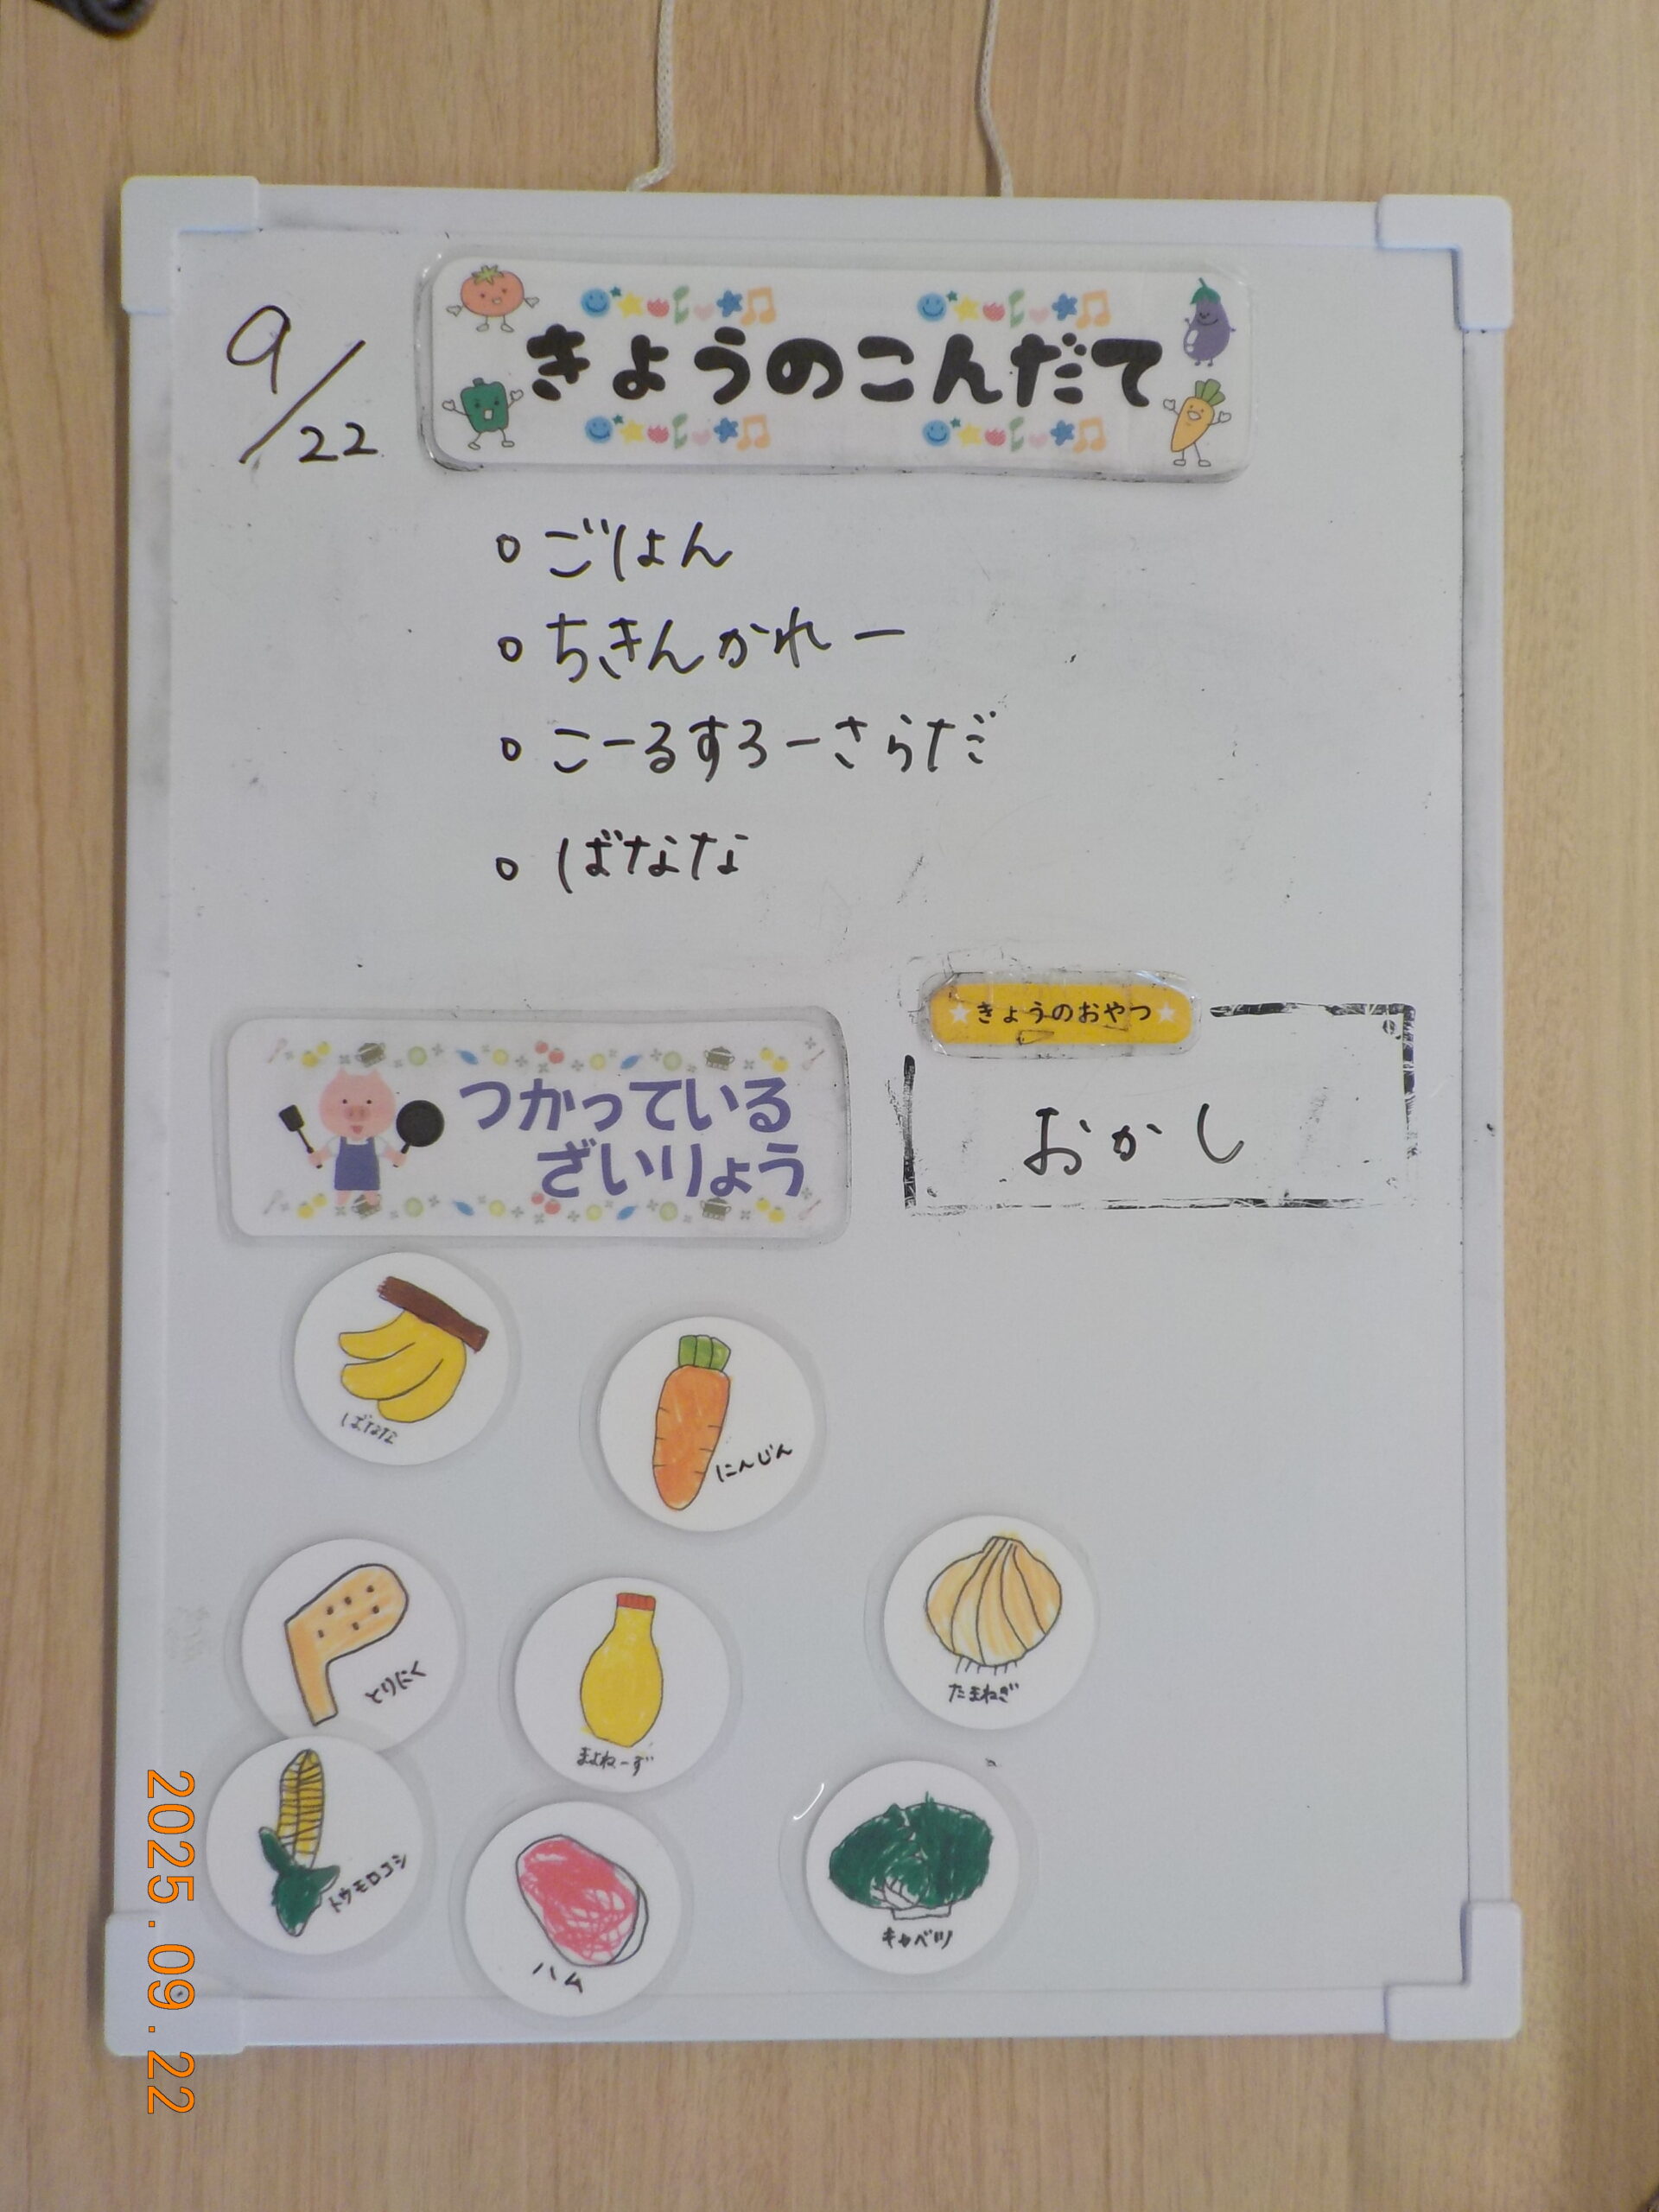 9/22
きょうのこんだて
○ ごはん
○ ちきんかれー
○ こーるすろーさらだ
○ ばなな
つかっている
ざいりょう
きょうのおやつ
おかし
ばなな
にんじん
とりにく
まよねーず
たまねぎ
トウモロコシ
ハム
キャベツ
2025.09.22